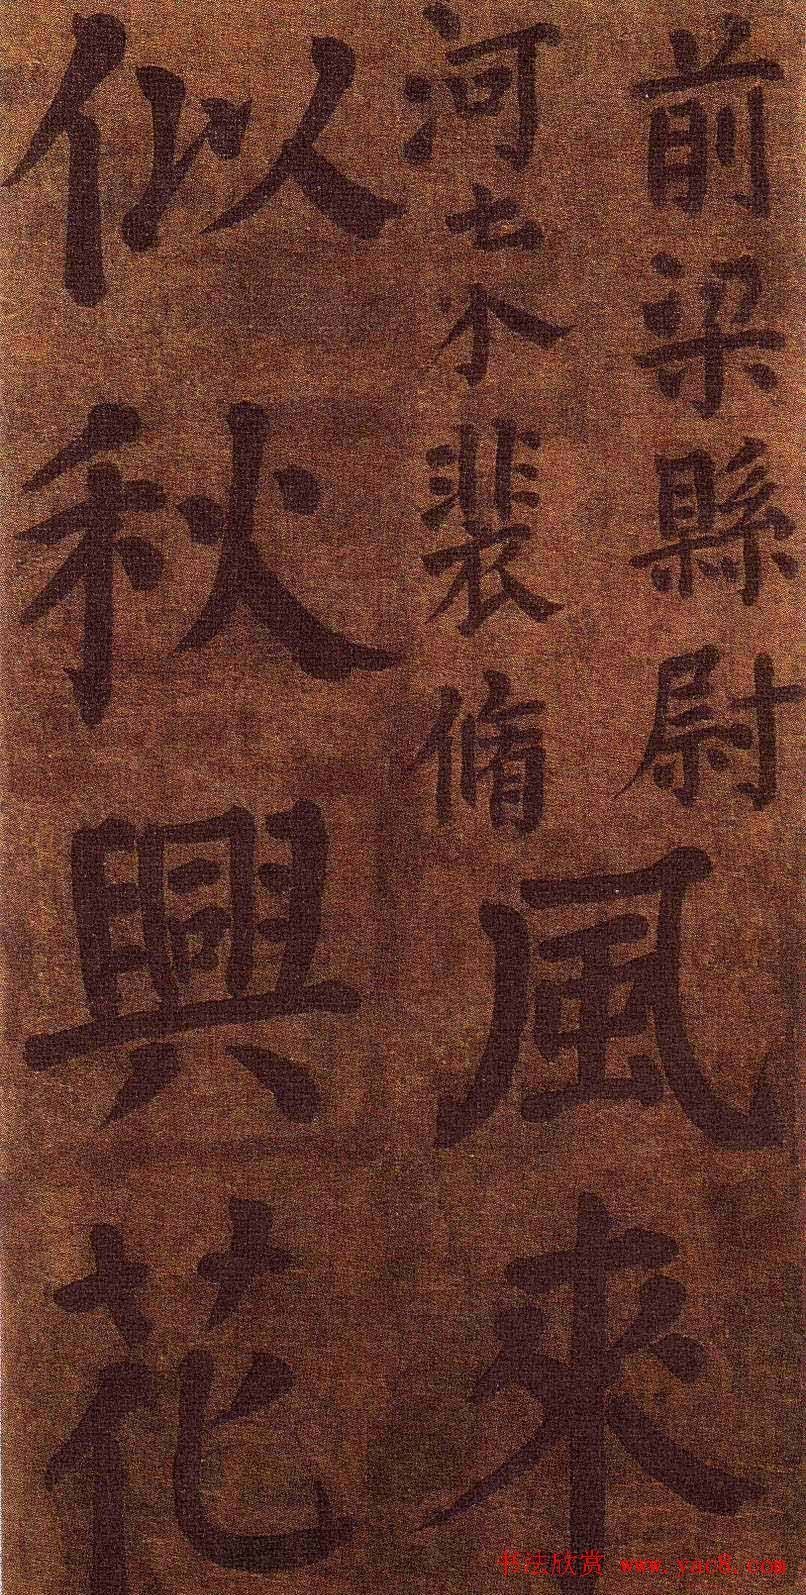 前梁縣尉
河 裴脩
風來
似秋興花
书法欣赏 www.yac8.com